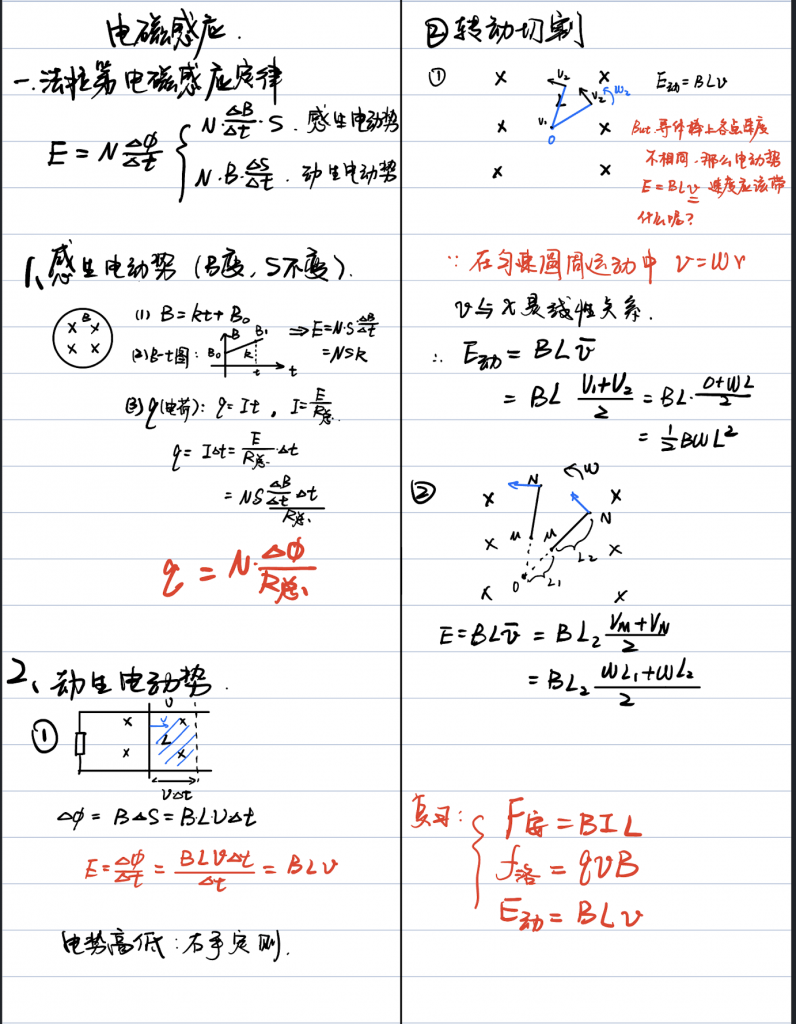 电磁感应.
一.法拉第电磁感应定律
E = N ΔΦ/Δt { N·ΔB/Δt·S. 感生电动势
N·B·ΔS/Δt. 动生电动势
1、感生电动势 (B变, S不变).
B
(1) B = kt + B₀
(2) B-t图: B B₀ B₁ k t t
⇒ E = N·S ΔB/Δt
= NSk
(3) q(电荷): q = It , I = E/R总.
q = IΔt = E/R总·Δt
= NS ΔB/Δt Δt / R总.
q = N·ΔΦ/R总.
2、动生电动势.
① U v L
vΔt
ΔΦ = BΔS = B·L·vΔt
E = ΔΦ/Δt = BLvΔt/Δt = BLv
电势高低: 右手定则.
② 转动切割
① v₂ L v₂ ω₂ v₁ O
E动 = BLv
But 导体棒上各点速度
不相同. 那么电动势
E = BLv 速度应该带
什么呢?
∵ 在匀速圆周运动中 v = ωr
v与r是线性关系.
∴ E动 = BLv̄
= BL (v₁+v₂)/2 = BL·(0+ωL)/2
= ½BωL²
② N ω N M M O L₁ L₂
E = BLv̄ = BL₂ (V_M+V_N)/2
= BL₂ (ωL₁+ωL₂)/2
复习: { F安 = BIL
f洛 = qvB
E动 = BLv